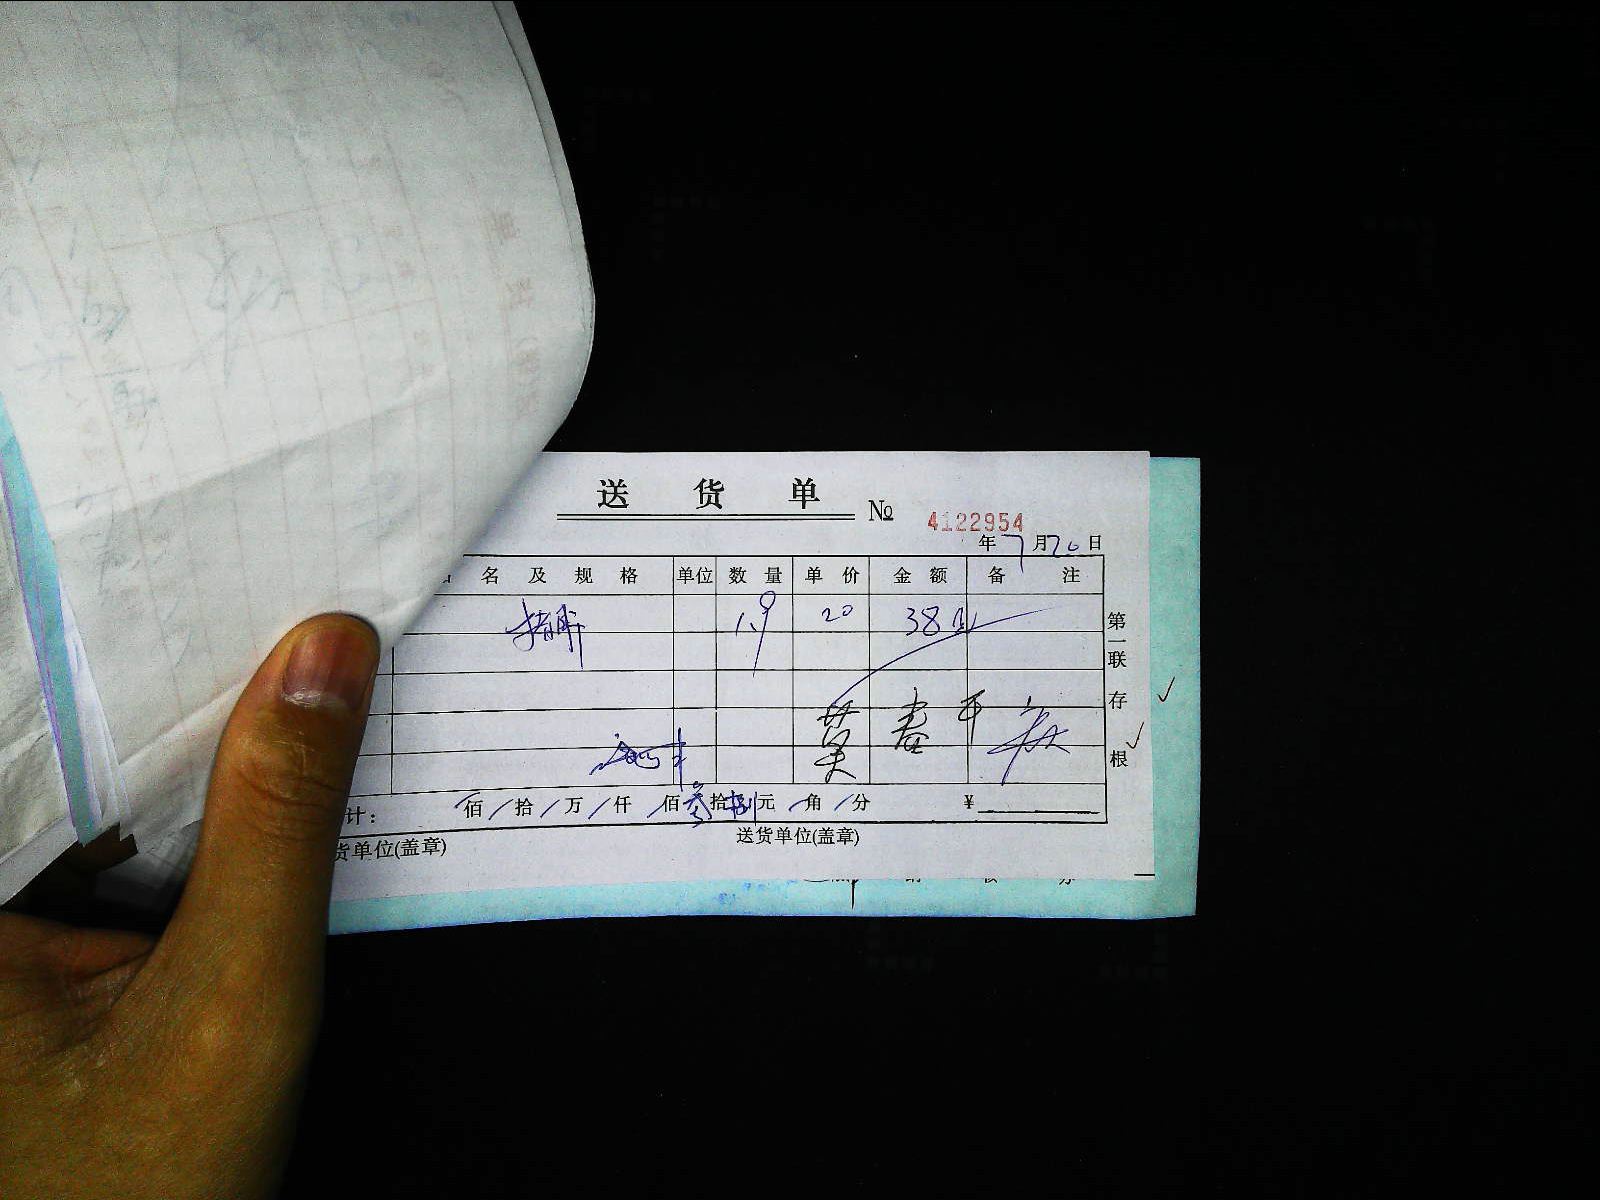 送 货 单
№ 4122954
年 7 月 20 日
名 及 规 格 单位 数 量 单 价 金 额 备 注
1.9 20 38
第一联 存根
计： 佰 拾 万 仟 佰 叁 拾 捌 元 角 分 ¥
货单位(盖章) 送货单位(盖章)